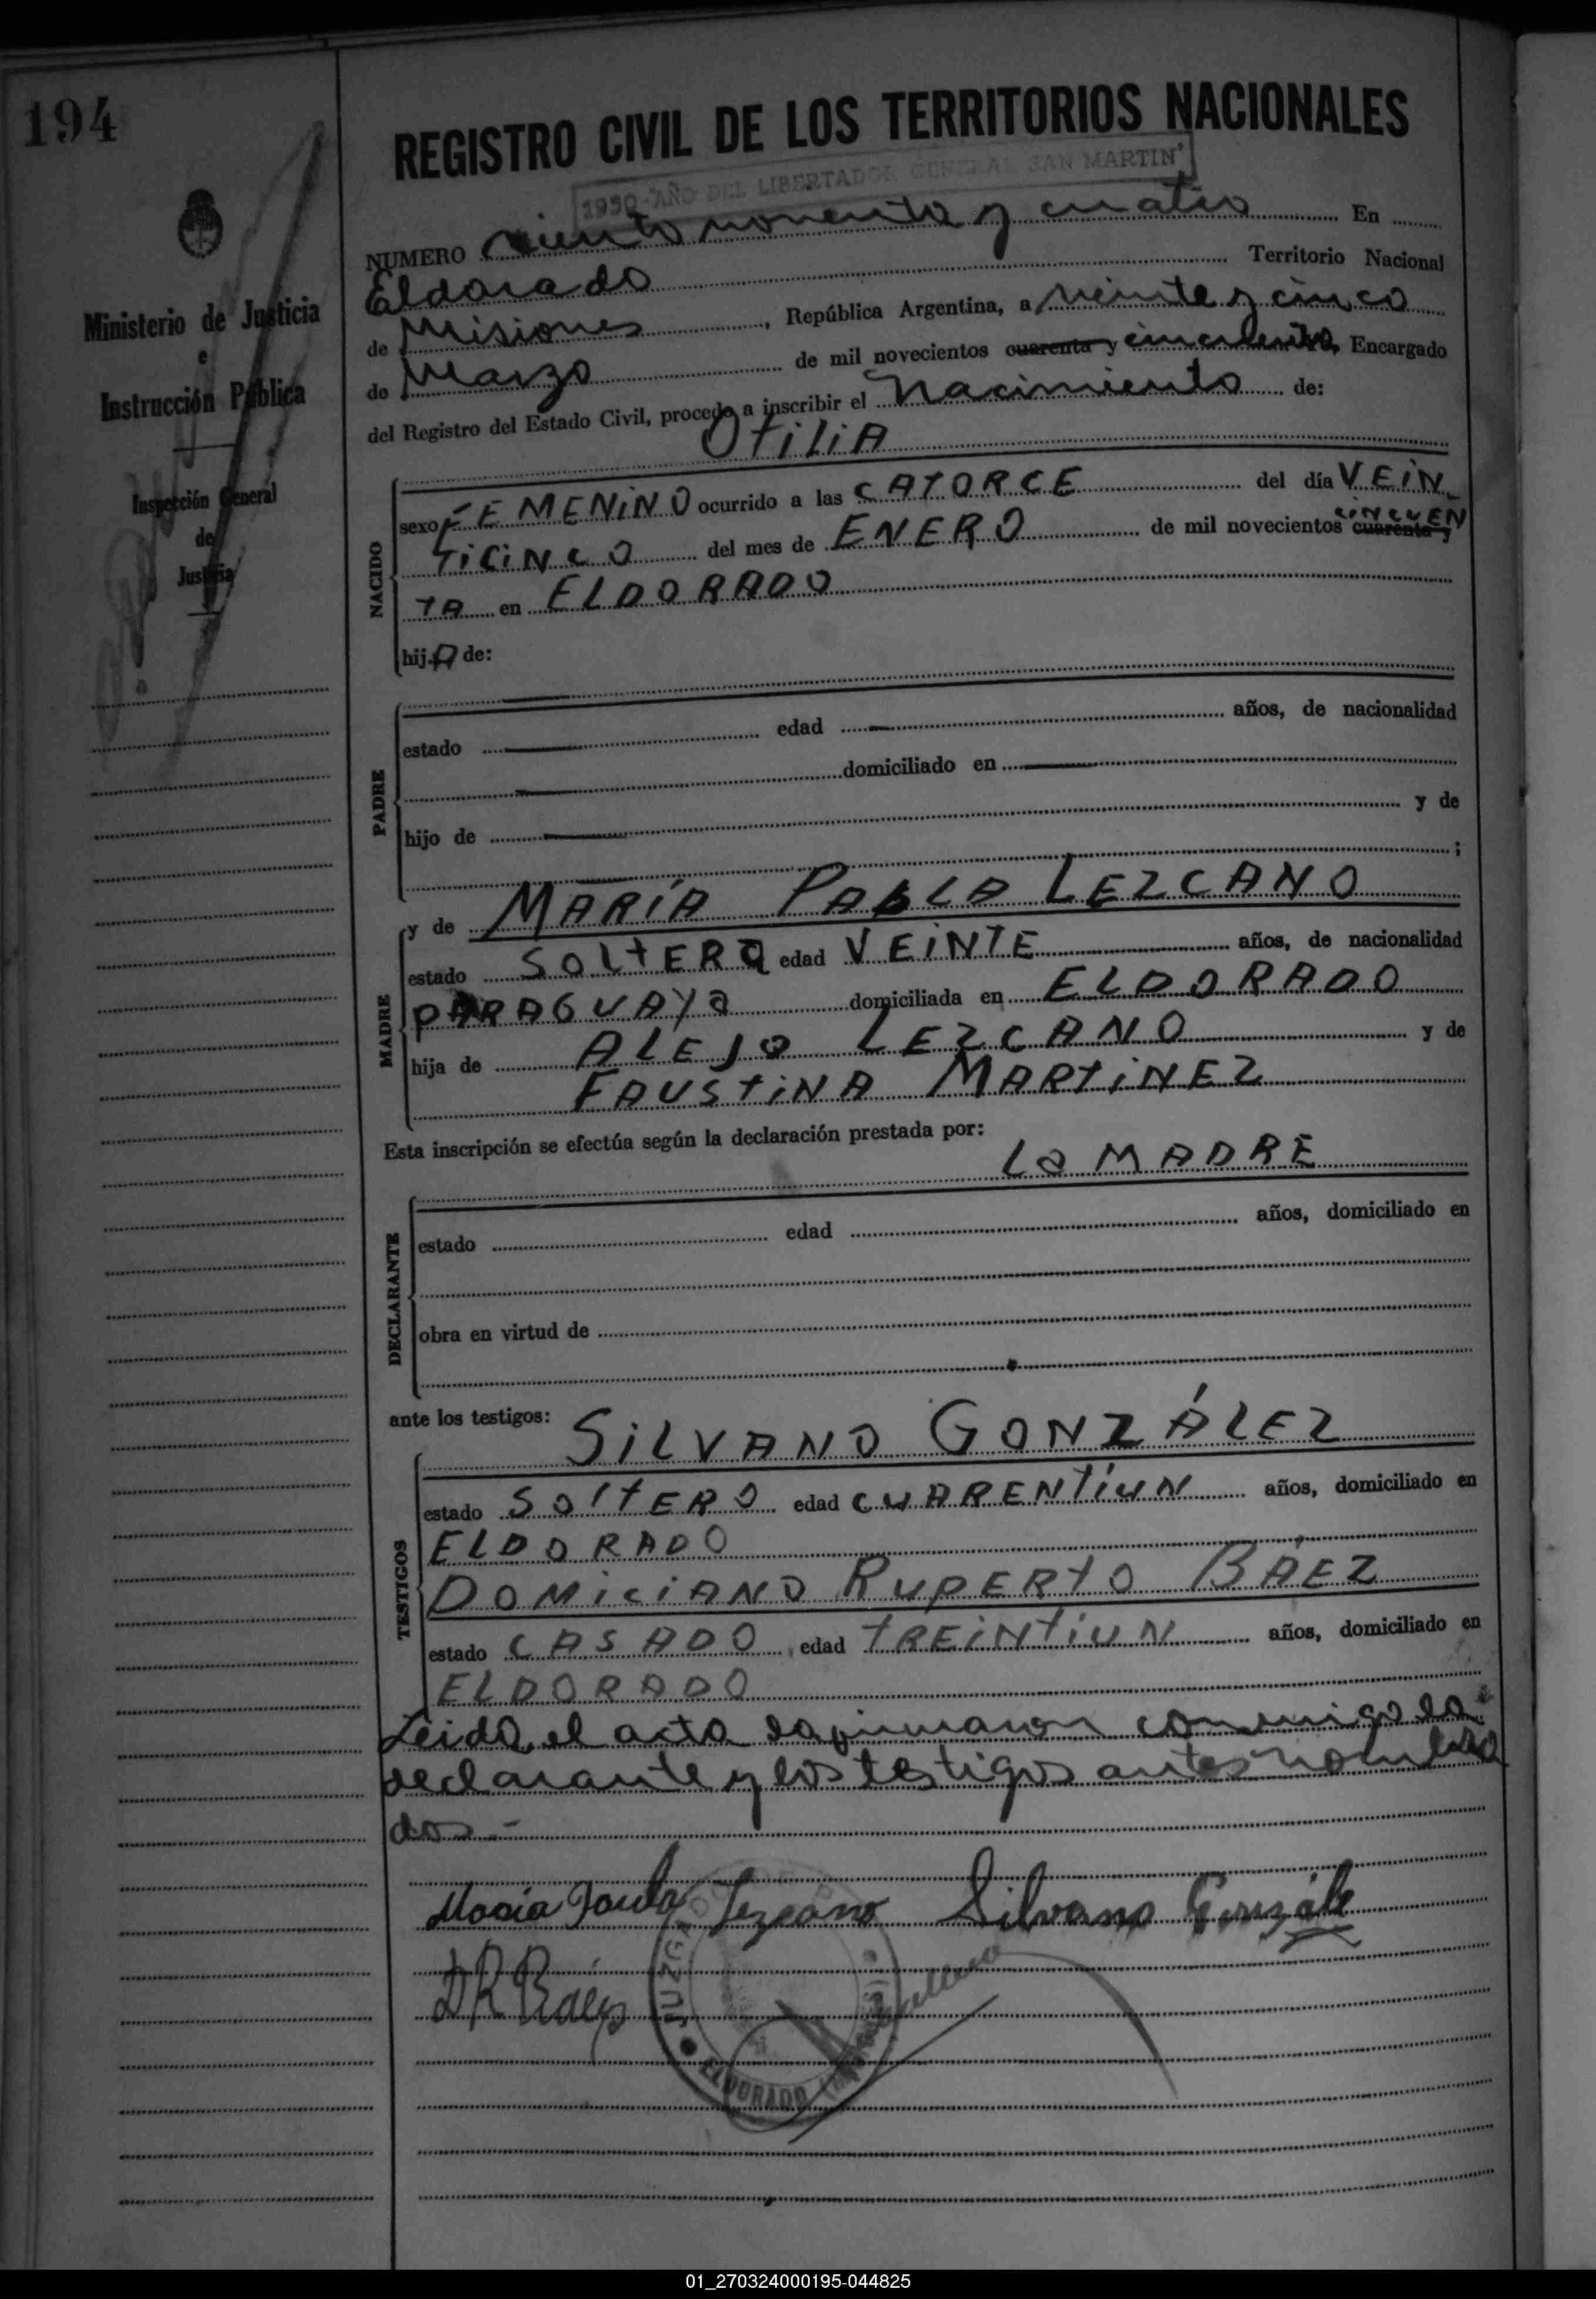 194
REGISTRO CIVIL DE LOS TERRITORIOS NACIONALES
1950-AÑO DEL LIBERTADOR GENERAL SAN MARTIN
NUMERO ciento noventa y cuatro En
Eldorado Territorio Nacional
de Misiones, República Argentina, a veinte y cinco
de Marzo de mil novecientos cuarenta y cincuenta, Encargado
del Registro del Estado Civil, procedo a inscribir el Nacimiento de:
OTILIA
Ministerio de Justicia
e
Instrucción Pública
Inspección General
de
Justicia
NACIDO
sexo FEMENINO ocurrido a las CATORCE del día VEIN
TICINCO del mes de ENERO de mil novecientos cuarenta y CINCUEN
TA en ELDORADO
hij.A de:
PADRE
estado edad años, de nacionalidad
domiciliado en
hijo de y de
;
MADRE
y de MARÍA PABLA LEZCANO
estado SOLTERA edad VEINTE años, de nacionalidad
PARAGUAYA domiciliada en ELDORADO
hija de ALEJO LEZCANO y de
FAUSTINA MARTINEZ
Esta inscripción se efectúa según la declaración prestada por:
LA MADRE
DECLARANTE
estado edad años, domiciliado en
obra en virtud de
ante los testigos:
SILVANO GONZÁLEZ
TESTIGOS
estado SOLTERO edad CUARENTIUN años, domiciliado en
ELDORADO
DOMICIANO RUPERTO BÁEZ
estado CASADO, edad TREINTIUN años, domiciliado en
ELDORADO
Leida el acta la firmaron conmigo la
declarante y los testigos antes nombra
dos.-
María Paula Lezcano Silvano Gonzále
DR Báez
JUZGADO
ELDORADO
01_270324000195-044825